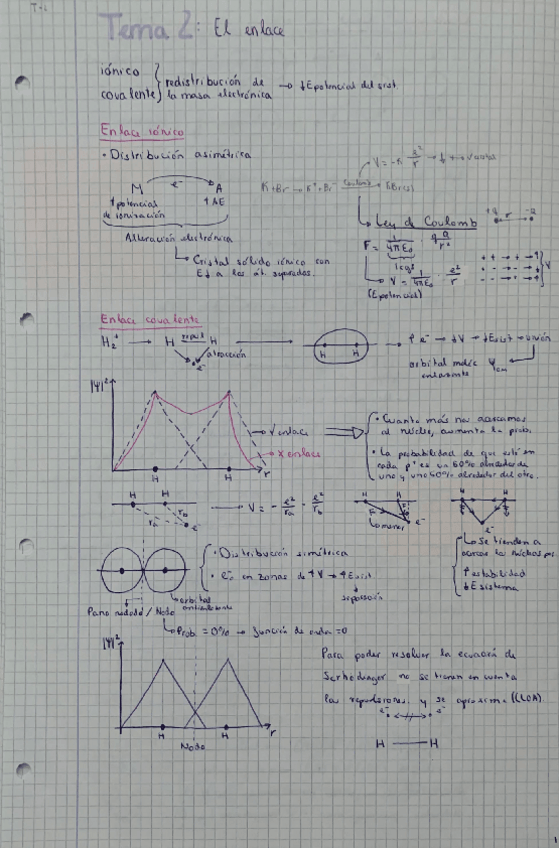 Tema 2: El enlace
iónico
covalente
redistribución de
la masa electrónica → ↓Epotencial del sist.
Enlace iónico
• Distribución asimétrica
M e⁻ A
↑potencias
de ionización
↑AE
Alteración electrónica
Cristal sólido iónico con
E↓ a los át. separados.
Ley de Coulomb
F = 1/4πE₀ · q q/r²
V = 1/4πE₀ · e²/r
(Epotencial)
Enlace covalente
H₂⁺ → H H
atracción
e⁻
H H
→ ↑e⁻ → ↓V → ↓Esist → unión
orbital molec
enlazante
|Ψ|²
→ ✓ enlace
→ X enlace
H H r
• Cuanto más nos acercamos
al núcleo, aumenta la prob.
• La probabilidad de que esté en
cada p⁺ es un 50% alrededor de
uno y uno 50% alrededor del otro.
H H
rₐ r_b e⁻
→ V = - e²/rₐ - e²/r_b
H H
e⁻
H H
e⁻
Se tienden a
acercar los núcleos por
↑ estabilidad
↓ E sistema
• Distribución simétrica
• e⁻ en zonas de ↑V → ↑Esist
separación
Plano nodal / Nodo
orbital
antienlazante
Prob = 0% → función de onda = 0
|Ψ|²
H H r
Nodo
Para poder resolver la ecuación de
no se tienen en cuenta
las repulsiones y se aproxima
e⁻ e⁻
H — H
1